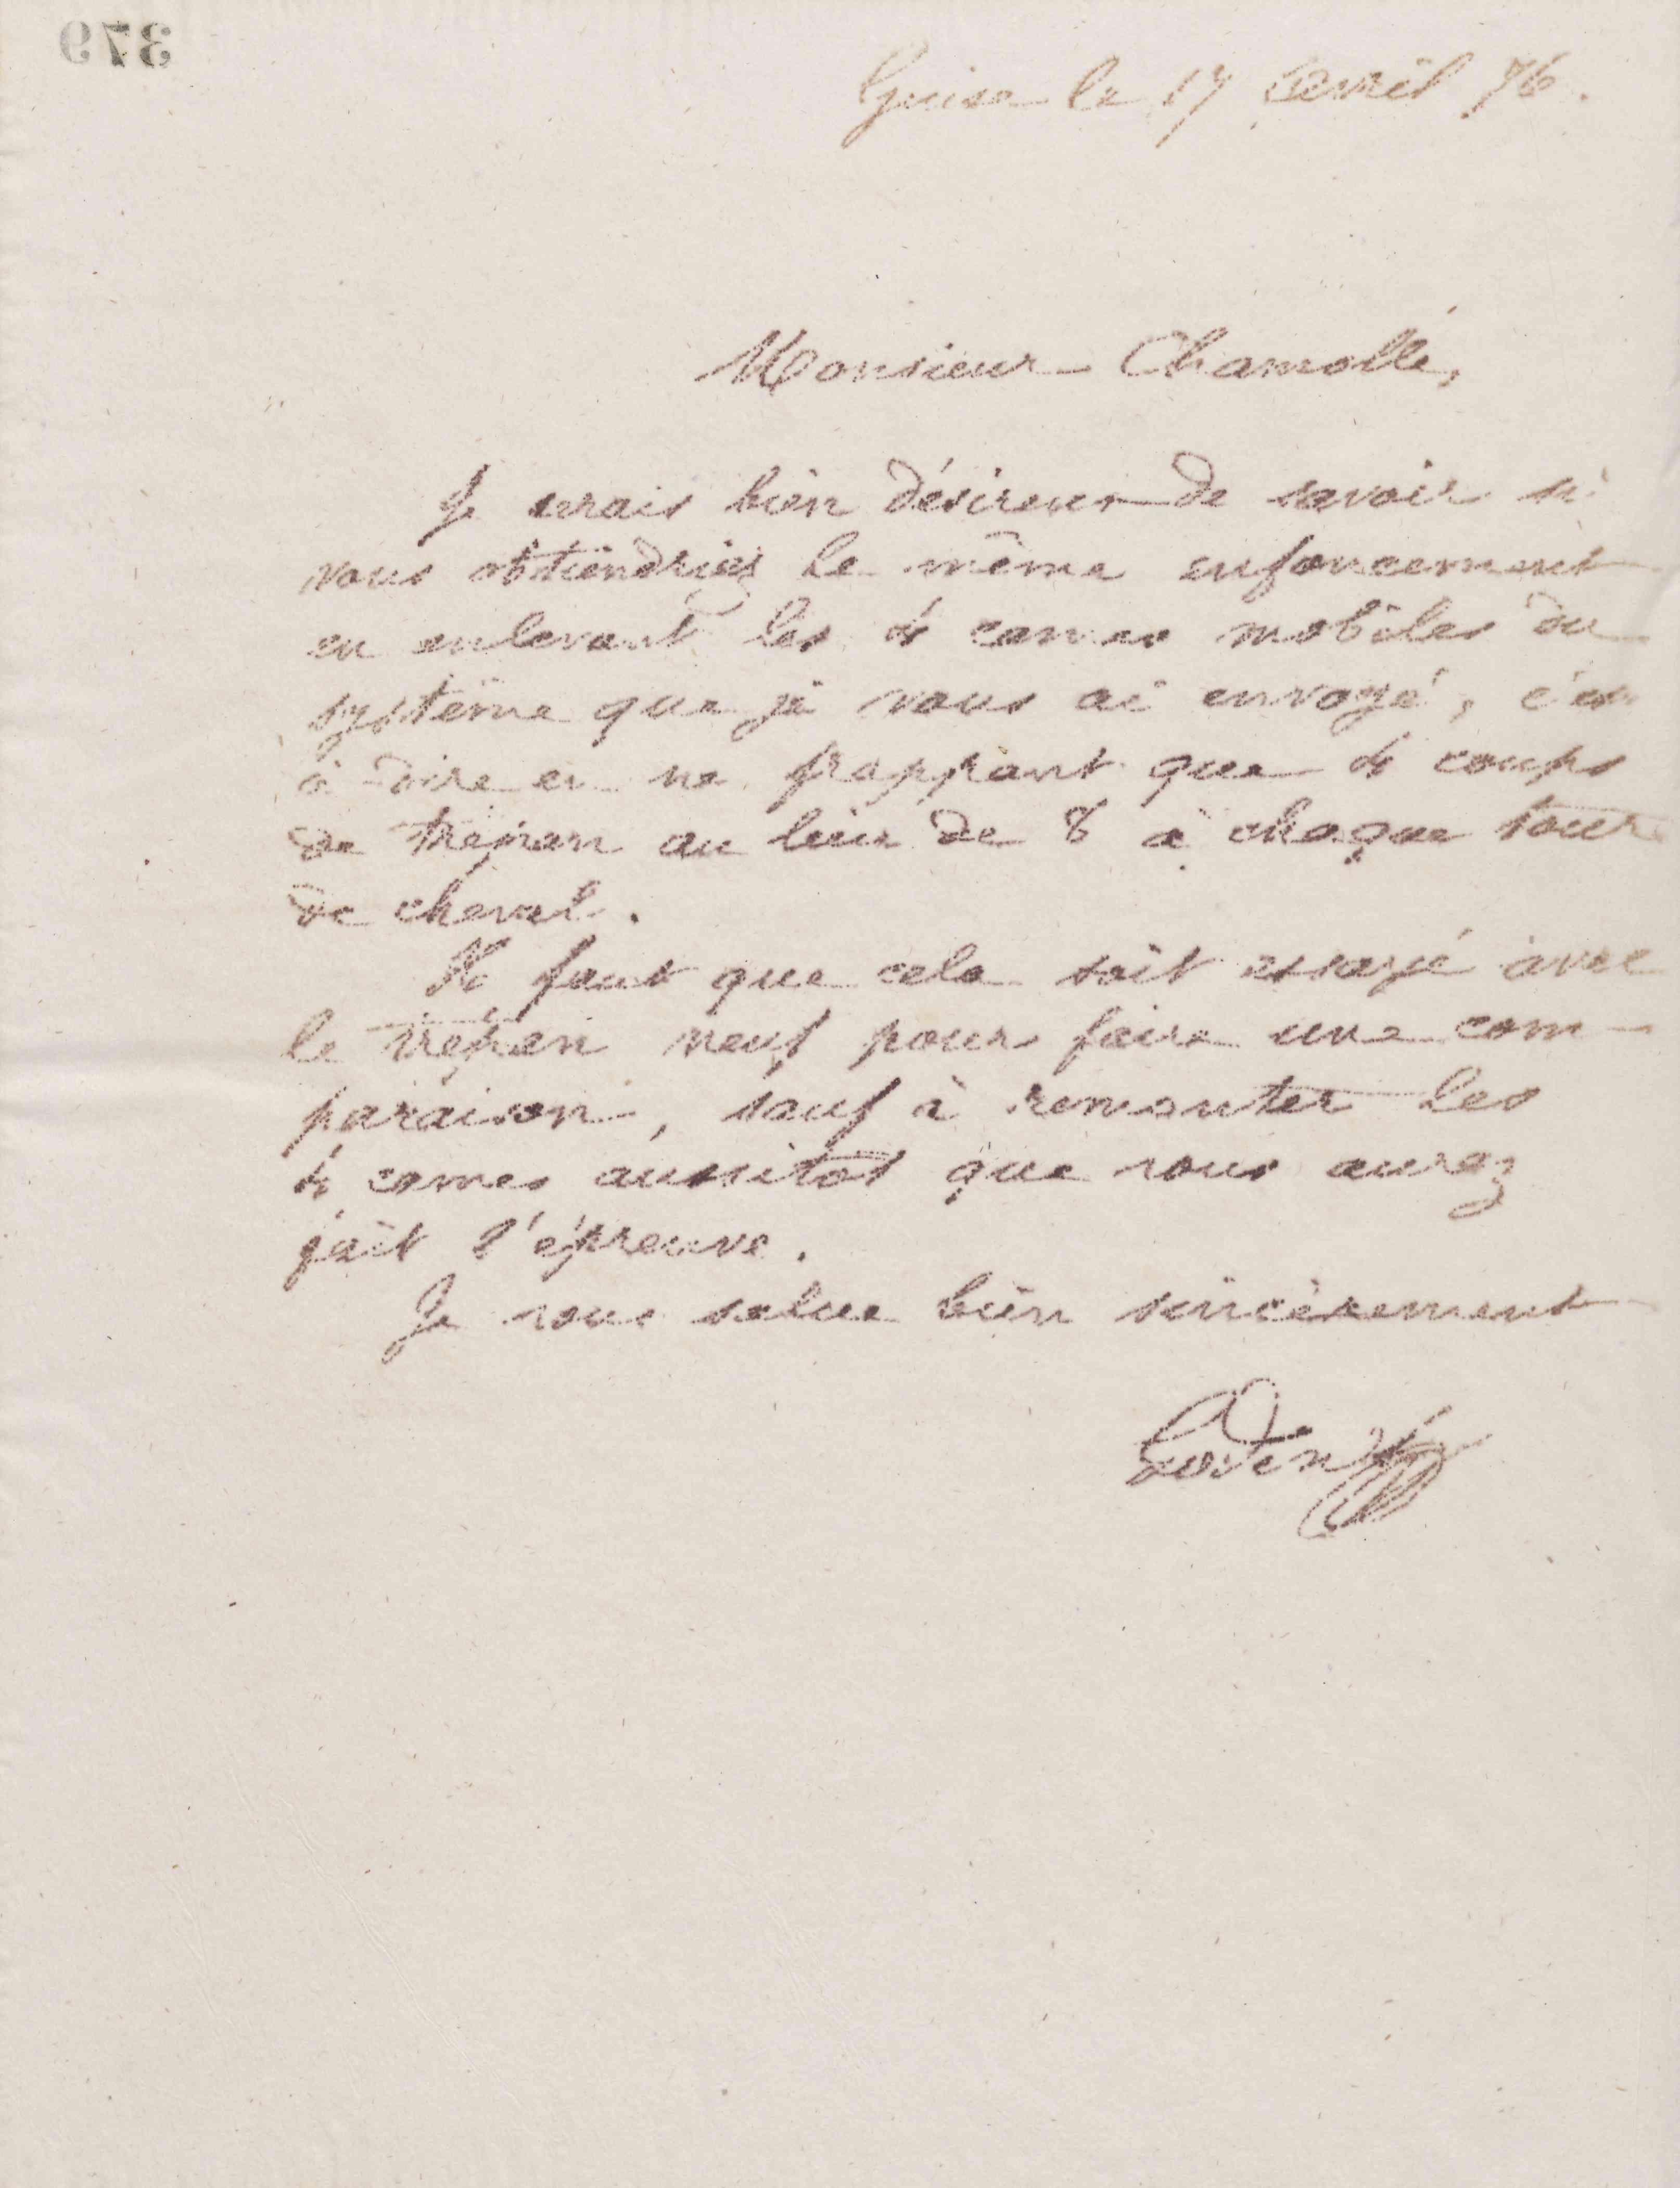 379
Guise le 17 avril 76.
Monsieur Chamollé,
Je serais bien désireux de savoir si
vous obtiendriez le même enfoncement
en enlevant les 4 cames mobiles du
système que je vous ai envoyé, c'est
à dire en ne frappant que 4 coups
de trépan au lieu de 8 à chaque tour
de cheval.
Il faut que cela soit essayé avec
le trépan neuf pour faire une com-
paraison, sauf à remonter les
4 cames aussitôt que vous aurez
fait l'épreuve.
Je vous salue bien sincèrement
Godin